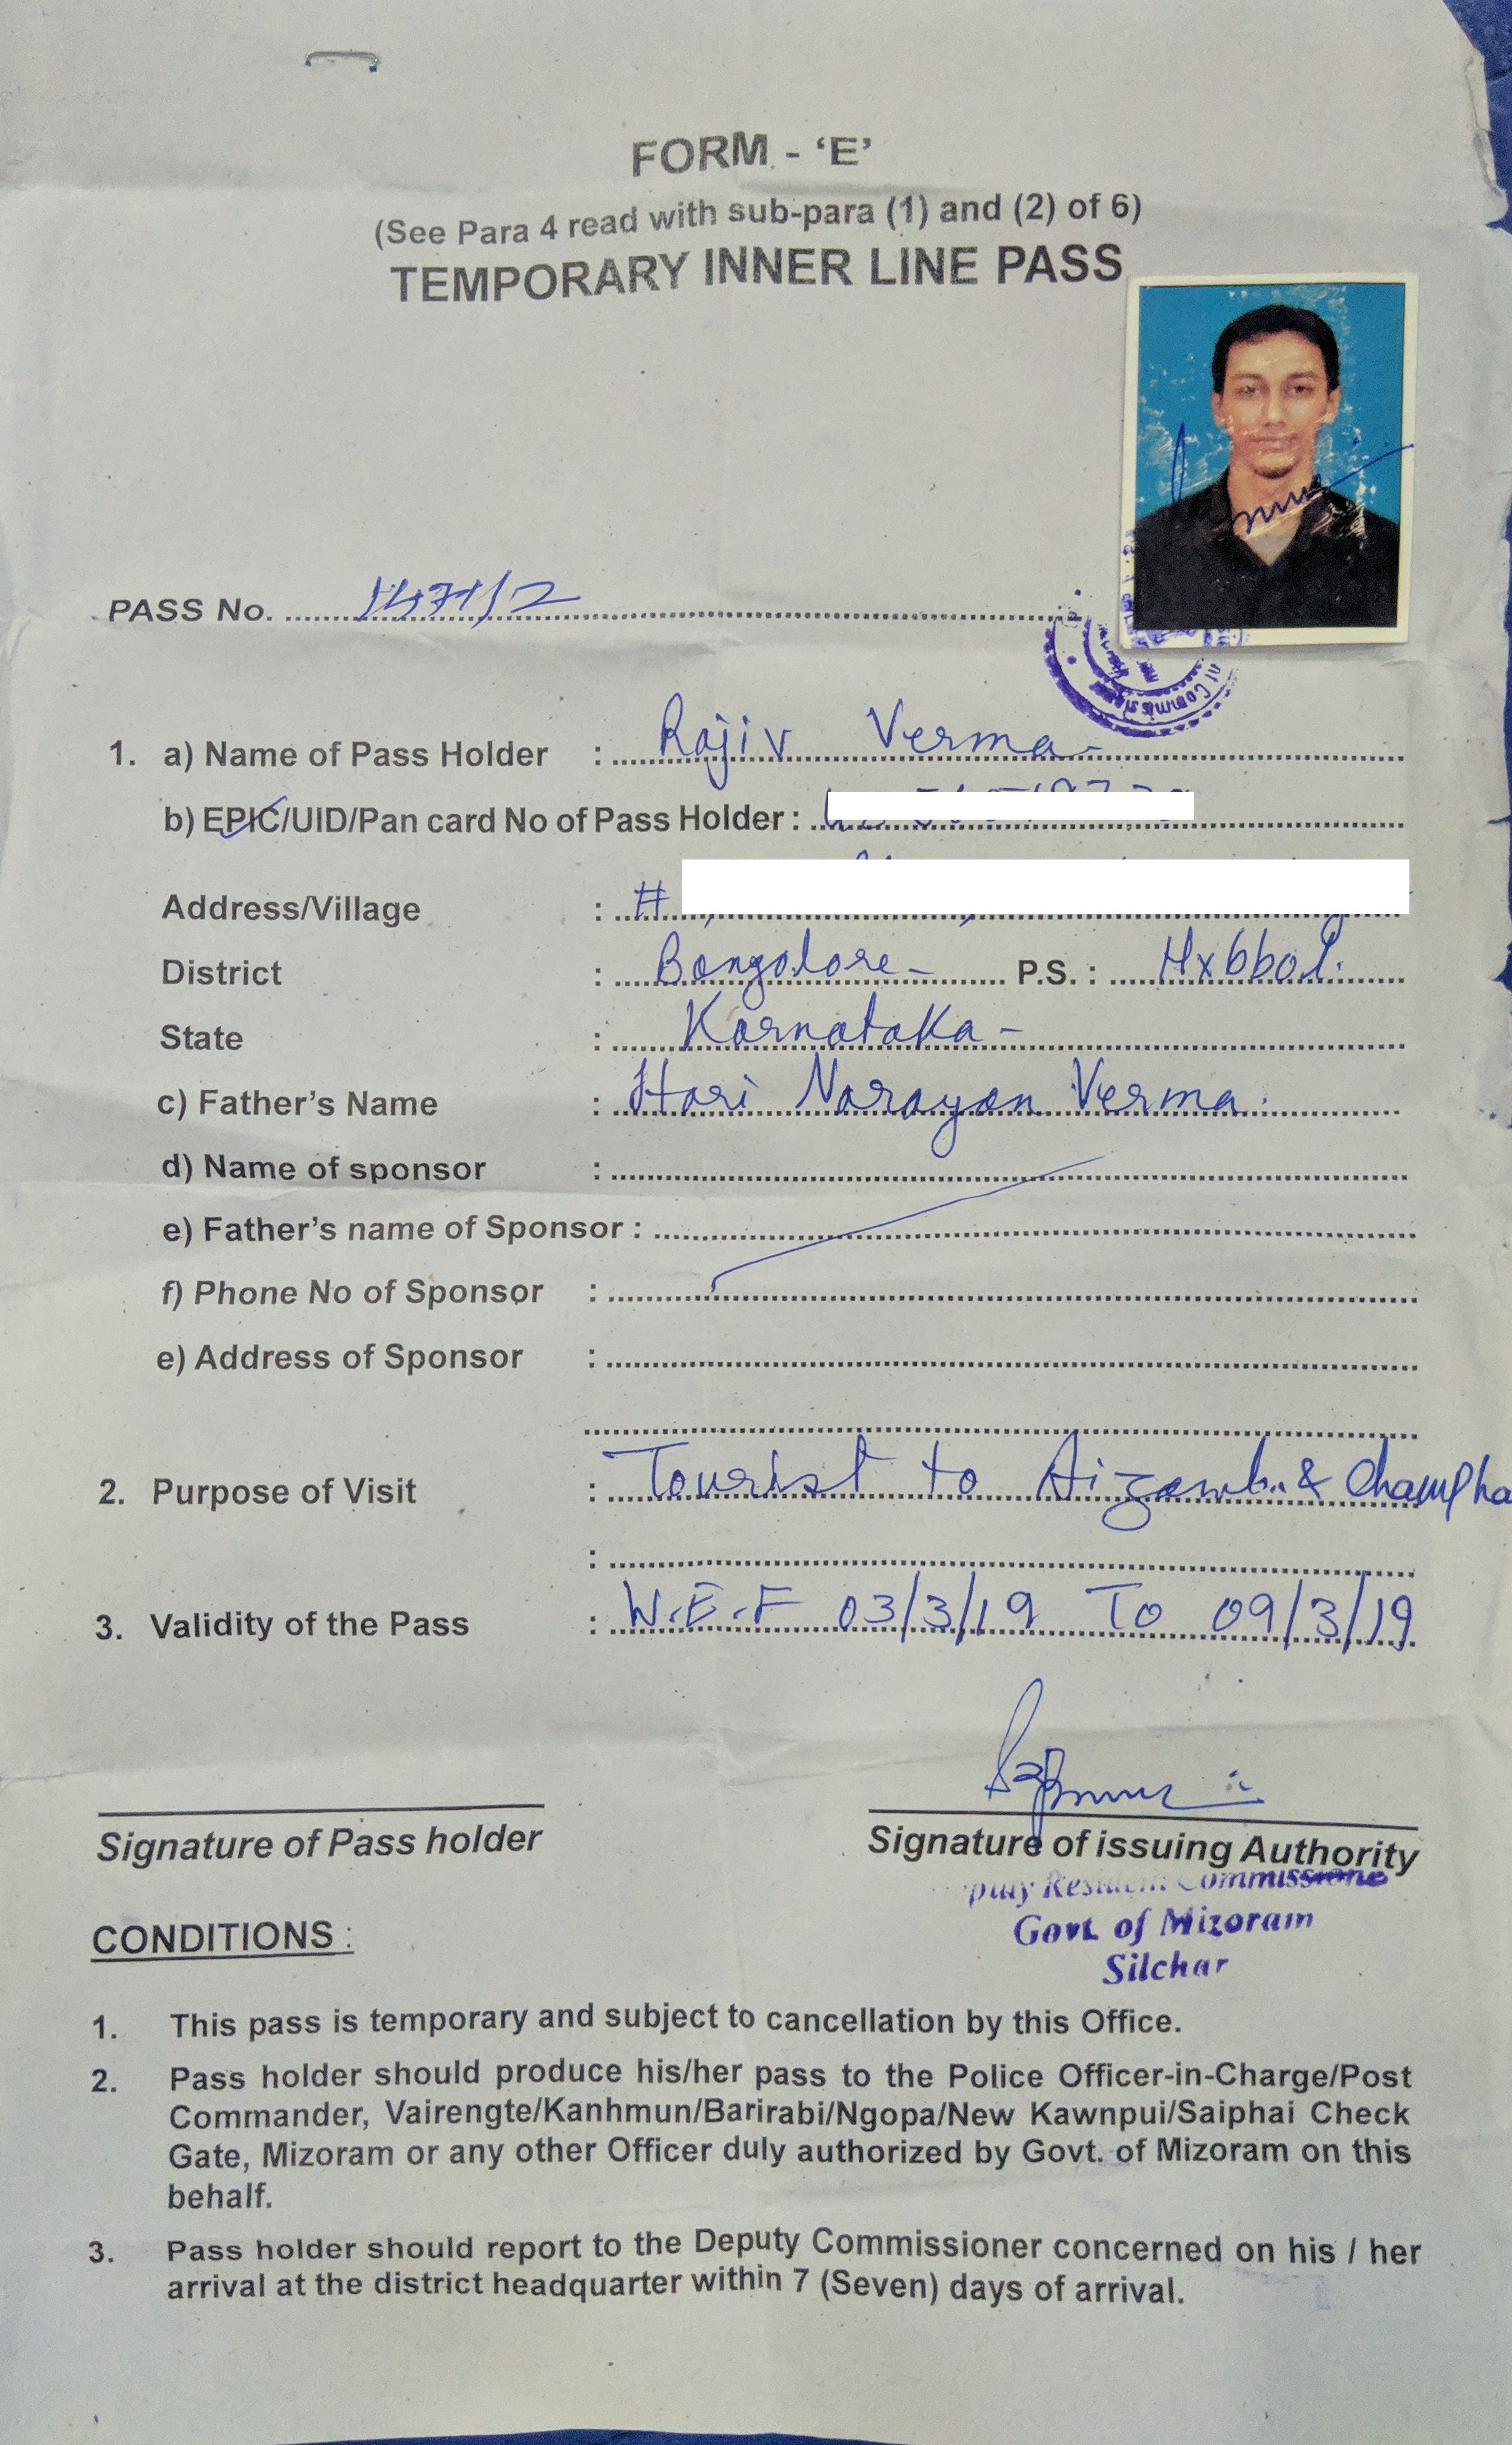 FORM - ‘E’
(See Para 4 read with sub-para (1) and (2) of 6)
TEMPORARY INNER LINE PASS
PASS No. ..........
1. a) Name of Pass Holder : Rajiv Verma
b) EPIC/UID/Pan card No of Pass Holder :
Address/Village : #
District : Bangalore P.S. :
State : Karnataka
c) Father’s Name : Hari Narayan Verma
d) Name of sponsor :
e) Father’s name of Sponsor :
f) Phone No of Sponsor :
e) Address of Sponsor :
2. Purpose of Visit : Tourist to Aizawl & Champha
:
3. Validity of the Pass : W.E.F 03/3/19 To 09/3/19
Signature of Pass holder
Signature of issuing Authority
Govt. of Mizoram
Silchar
CONDITIONS :
1. This pass is temporary and subject to cancellation by this Office.
2. Pass holder should produce his/her pass to the Police Officer-in-Charge/Post
Commander, Vairengte/Kanhmun/Barirabi/Ngopa/New Kawnpui/Saiphai Check
Gate, Mizoram or any other Officer duly authorized by Govt. of Mizoram on this
behalf.
3. Pass holder should report to the Deputy Commissioner concerned on his / her
arrival at the district headquarter within 7 (Seven) days of arrival.